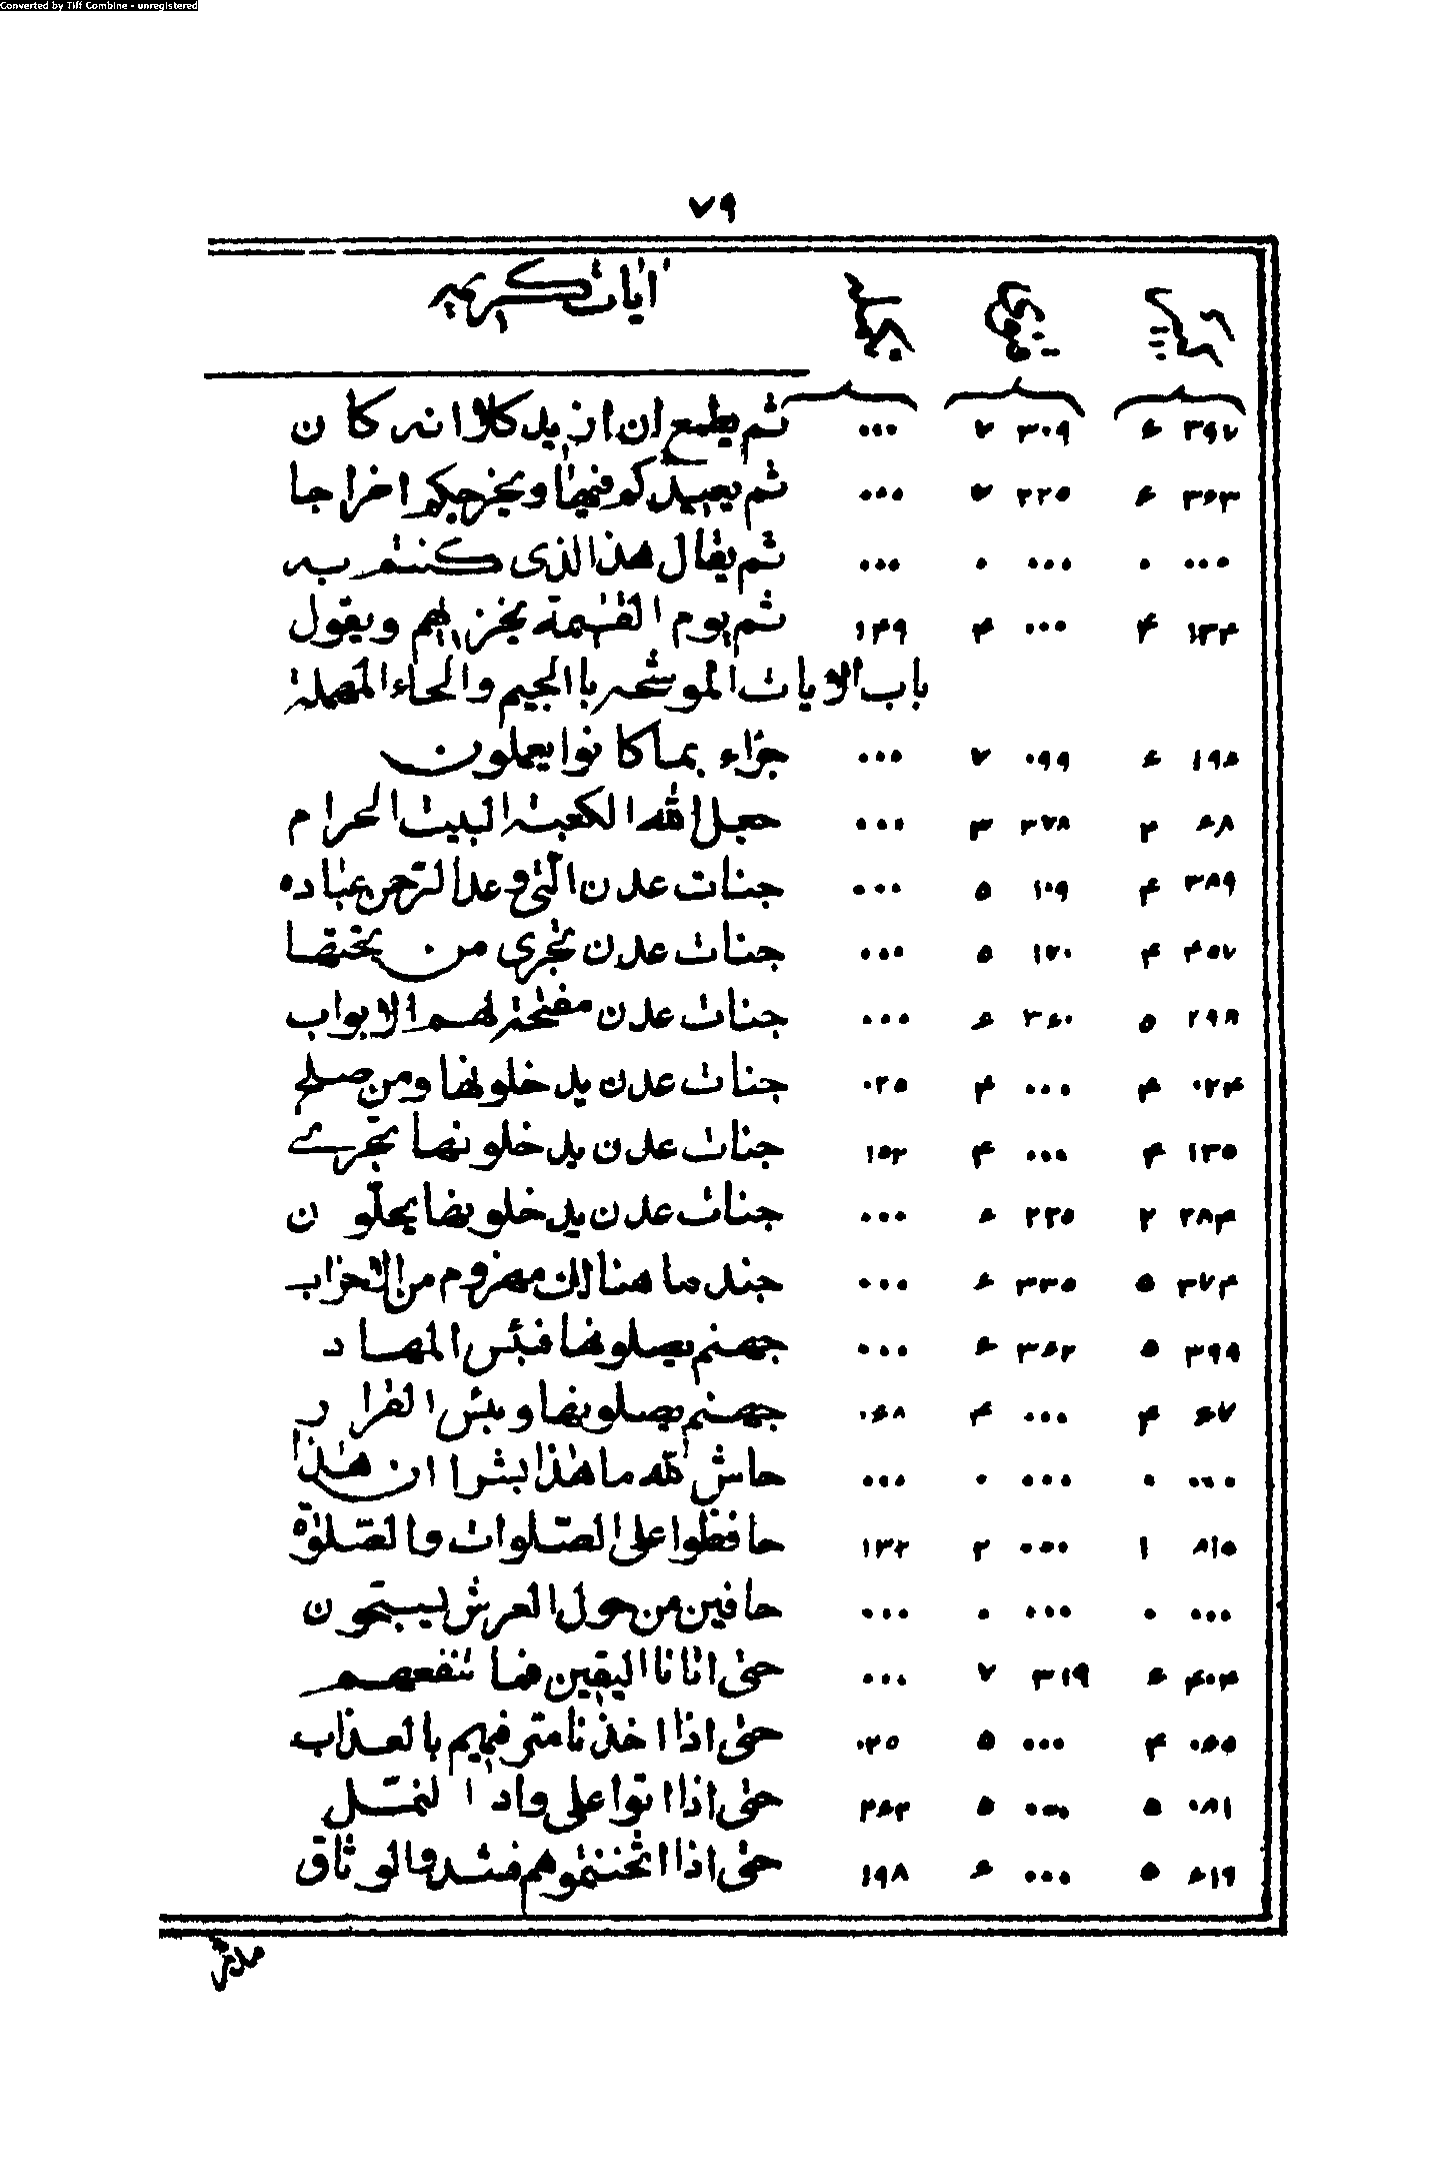 Converted by Tiff Combine - unregistered
٧٩
آيات كريمه
٣٩٧ ۶ ٣٠٩ ٧ ٠٠٠ ثم يطمع ان ازيد كلا انه كان
٣۶٣ ۶ ٢٢٥ ٧ ٠٠٠ ثم يعيدكم فيها ويخرجكم اخراجا
٠٠٠ ٠ ٠٠٠ ٠ ٠٠٠ ثم يقال هذا الذى كنتم به
١٣۴ ۴ ٠٠٠ ۴ ١۴٩ ثم يوم القيٰمة يخزيهم ويقول
باب الايات الموشحه با الجيم والحاء المهملة
١٩٥ ۶ ٠٩٩ ٧ ٠٠٠ جزاء بما كانوا يعملون
۶٨ ٢ ٣٢٨ ٣ ٠٠٠ جعل الله الكعبة البيت الحرام
٣٨٩ ۴ ١٠٩ ٥ ٠٠٠ جنات عدن الّتى وعد الرّحمن عباده
۴٥٧ ۴ ١٢٠ ٥ ٠٠٠ جنات عدن تجرى من تحتها
٢٩٨ ٥ ٣۶٠ ۶ ٠٠٠ جنات عدن مفتحة لهم الابواب
٠٢۴ ۴ ٠٠٠ ۴ ٠٢٥ جنات عدن يدخلونها ومن صلح
١٣٥ ۴ ٠٠٠ ۴ ١٥٢ جنات عدن يدخلونها تجرے
٢٨۴ ٢ ٢٢٥ ۶ ٠٠٠ جنات عدن يدخلونها يحلّون
٣٧۴ ٥ ٣٣٥ ۶ ٠٠٠ جند ما هنالك مهزوم من الاحزاب
٣٩٩ ٥ ٣۶٢ ۶ ٠٠٠ جهنم يصلونها فبئس المهاد
۶٧ ۴ ٠٠٠ ۴ ٠۶٨ جهنم يصلونها وبئس القرار
٠٠٠ ٠ ٠٠٠ ٠ ٠٠٠ حاش لله ما هٰذا بشرا ان هٰذا
٨١٥ ١ ٠٠٠ ٢ ١٣٢ حافظوا على الصّلوات والصّلوٰة
٠٠٠ ٠ ٠٠٠ ٠ ٠٠٠ حافين من حول العرش يسبّحون
۴٠۴ ۶ ٣١٩ ٧ ٠٠٠ حتى اتانا اليقين فما تنفعهم
٠۶٥ ۴ ٠٠٠ ٥ ٠٢٥ حتى اذا اخذنا مترفيهم بالعذاب
٠٨١ ٥ ٠٠٠ ٥ ٢۶٢ حتى اذا اتوا على واد النمّل
۶١٩ ٥ ٠٠٠ ۶ ١٩٨ حتى اذا اثخنتموهم فشدوا الوثاق